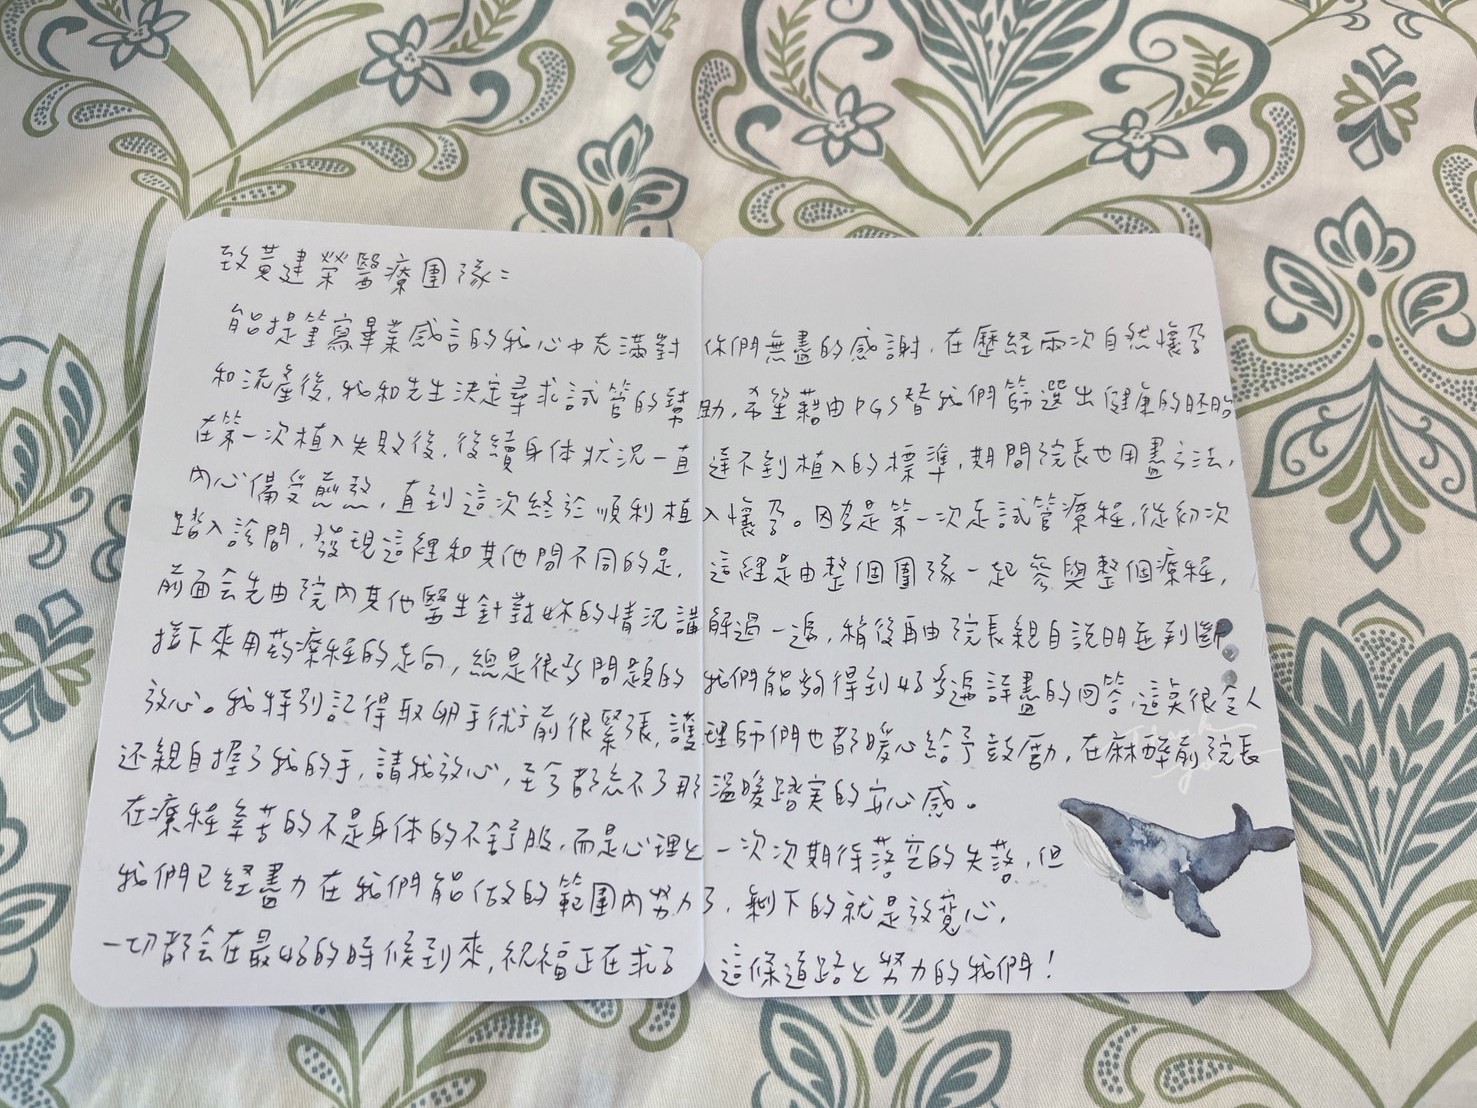 致黃建榮醫療團隊：
能提筆寫畢業感言的我心中充滿對你們無盡的感謝，在歷經兩次自然懷孕
和流產後，我和先生決定尋求試管的幫助，希望藉由PGS替我們篩選出健康的胚胎
在第一次植入失敗後，後續身体狀況一直達不到植入的標準，期間院長也用盡方法，
內心備受煎熬，直到這次終於順利植入懷孕。因為是第一次走試管療程，從初次
踏入診間，發現這裡和其他間不同的是，這裡是由整個團隊一起參與整個療程，
前面会先由院內其他醫生針對妳的情況講解過一遍，稍後再由院長親自說明並判斷
接下來用药療程的走向，總是很多問題的我們能夠得到好多遍詳盡的回答，這真很令人
放心。我特別記得取卵手術前很緊張，護理師們也都暖心給予鼓勵，在麻醉前院長
还親自握了我的手，請我放心，至今都忘不了那溫暖踏實的安心感。
在療程辛苦的不是身体的不舒服，而是心理上一次次期待落空的失落，但
我們已經盡力在我們能做的範圍內努力了，剩下的就是放寬心，
一切都会在最好的時候到來，祝福正在求子這條道路上努力的我們！
Thank you